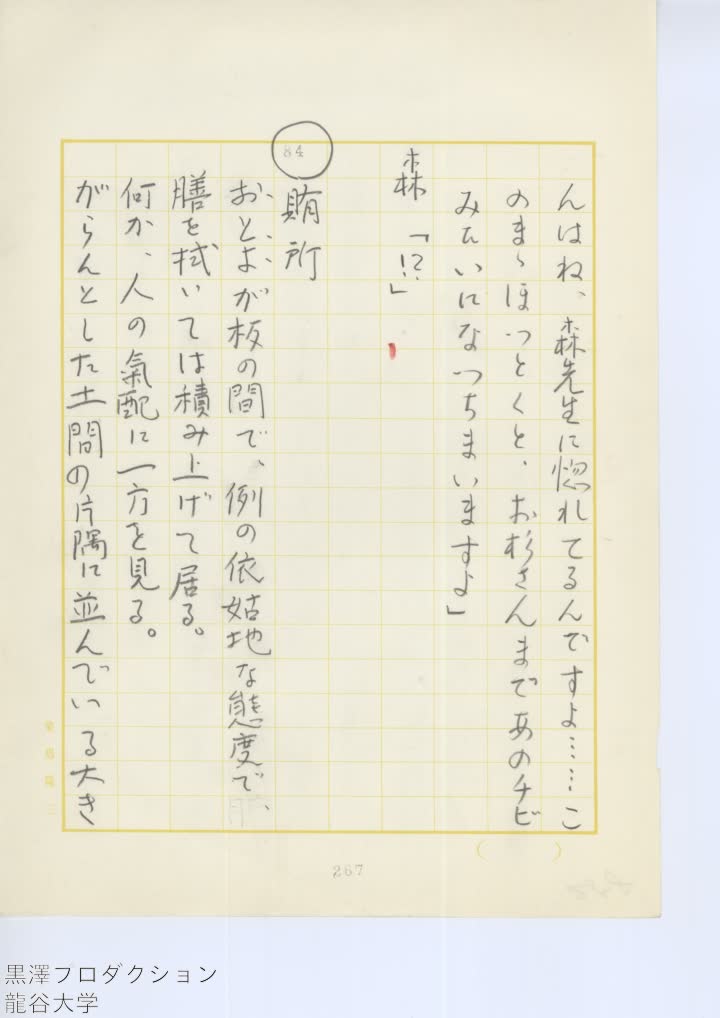 んはね、森先生に惚れてるんですよ……こ
のまゝほつとくと、お杉さんまであのチビ
みたいになつちまいますよ」
森「!?」
84
賄所
おとよが板の間で、例の依姑地な態度で、
膳を拭いては積み上げて居る。
何か、人の氣配に一方を見る。
がらんとした土間の片隅に並んでいる大き
267
黒澤プロダクション
龍谷大学